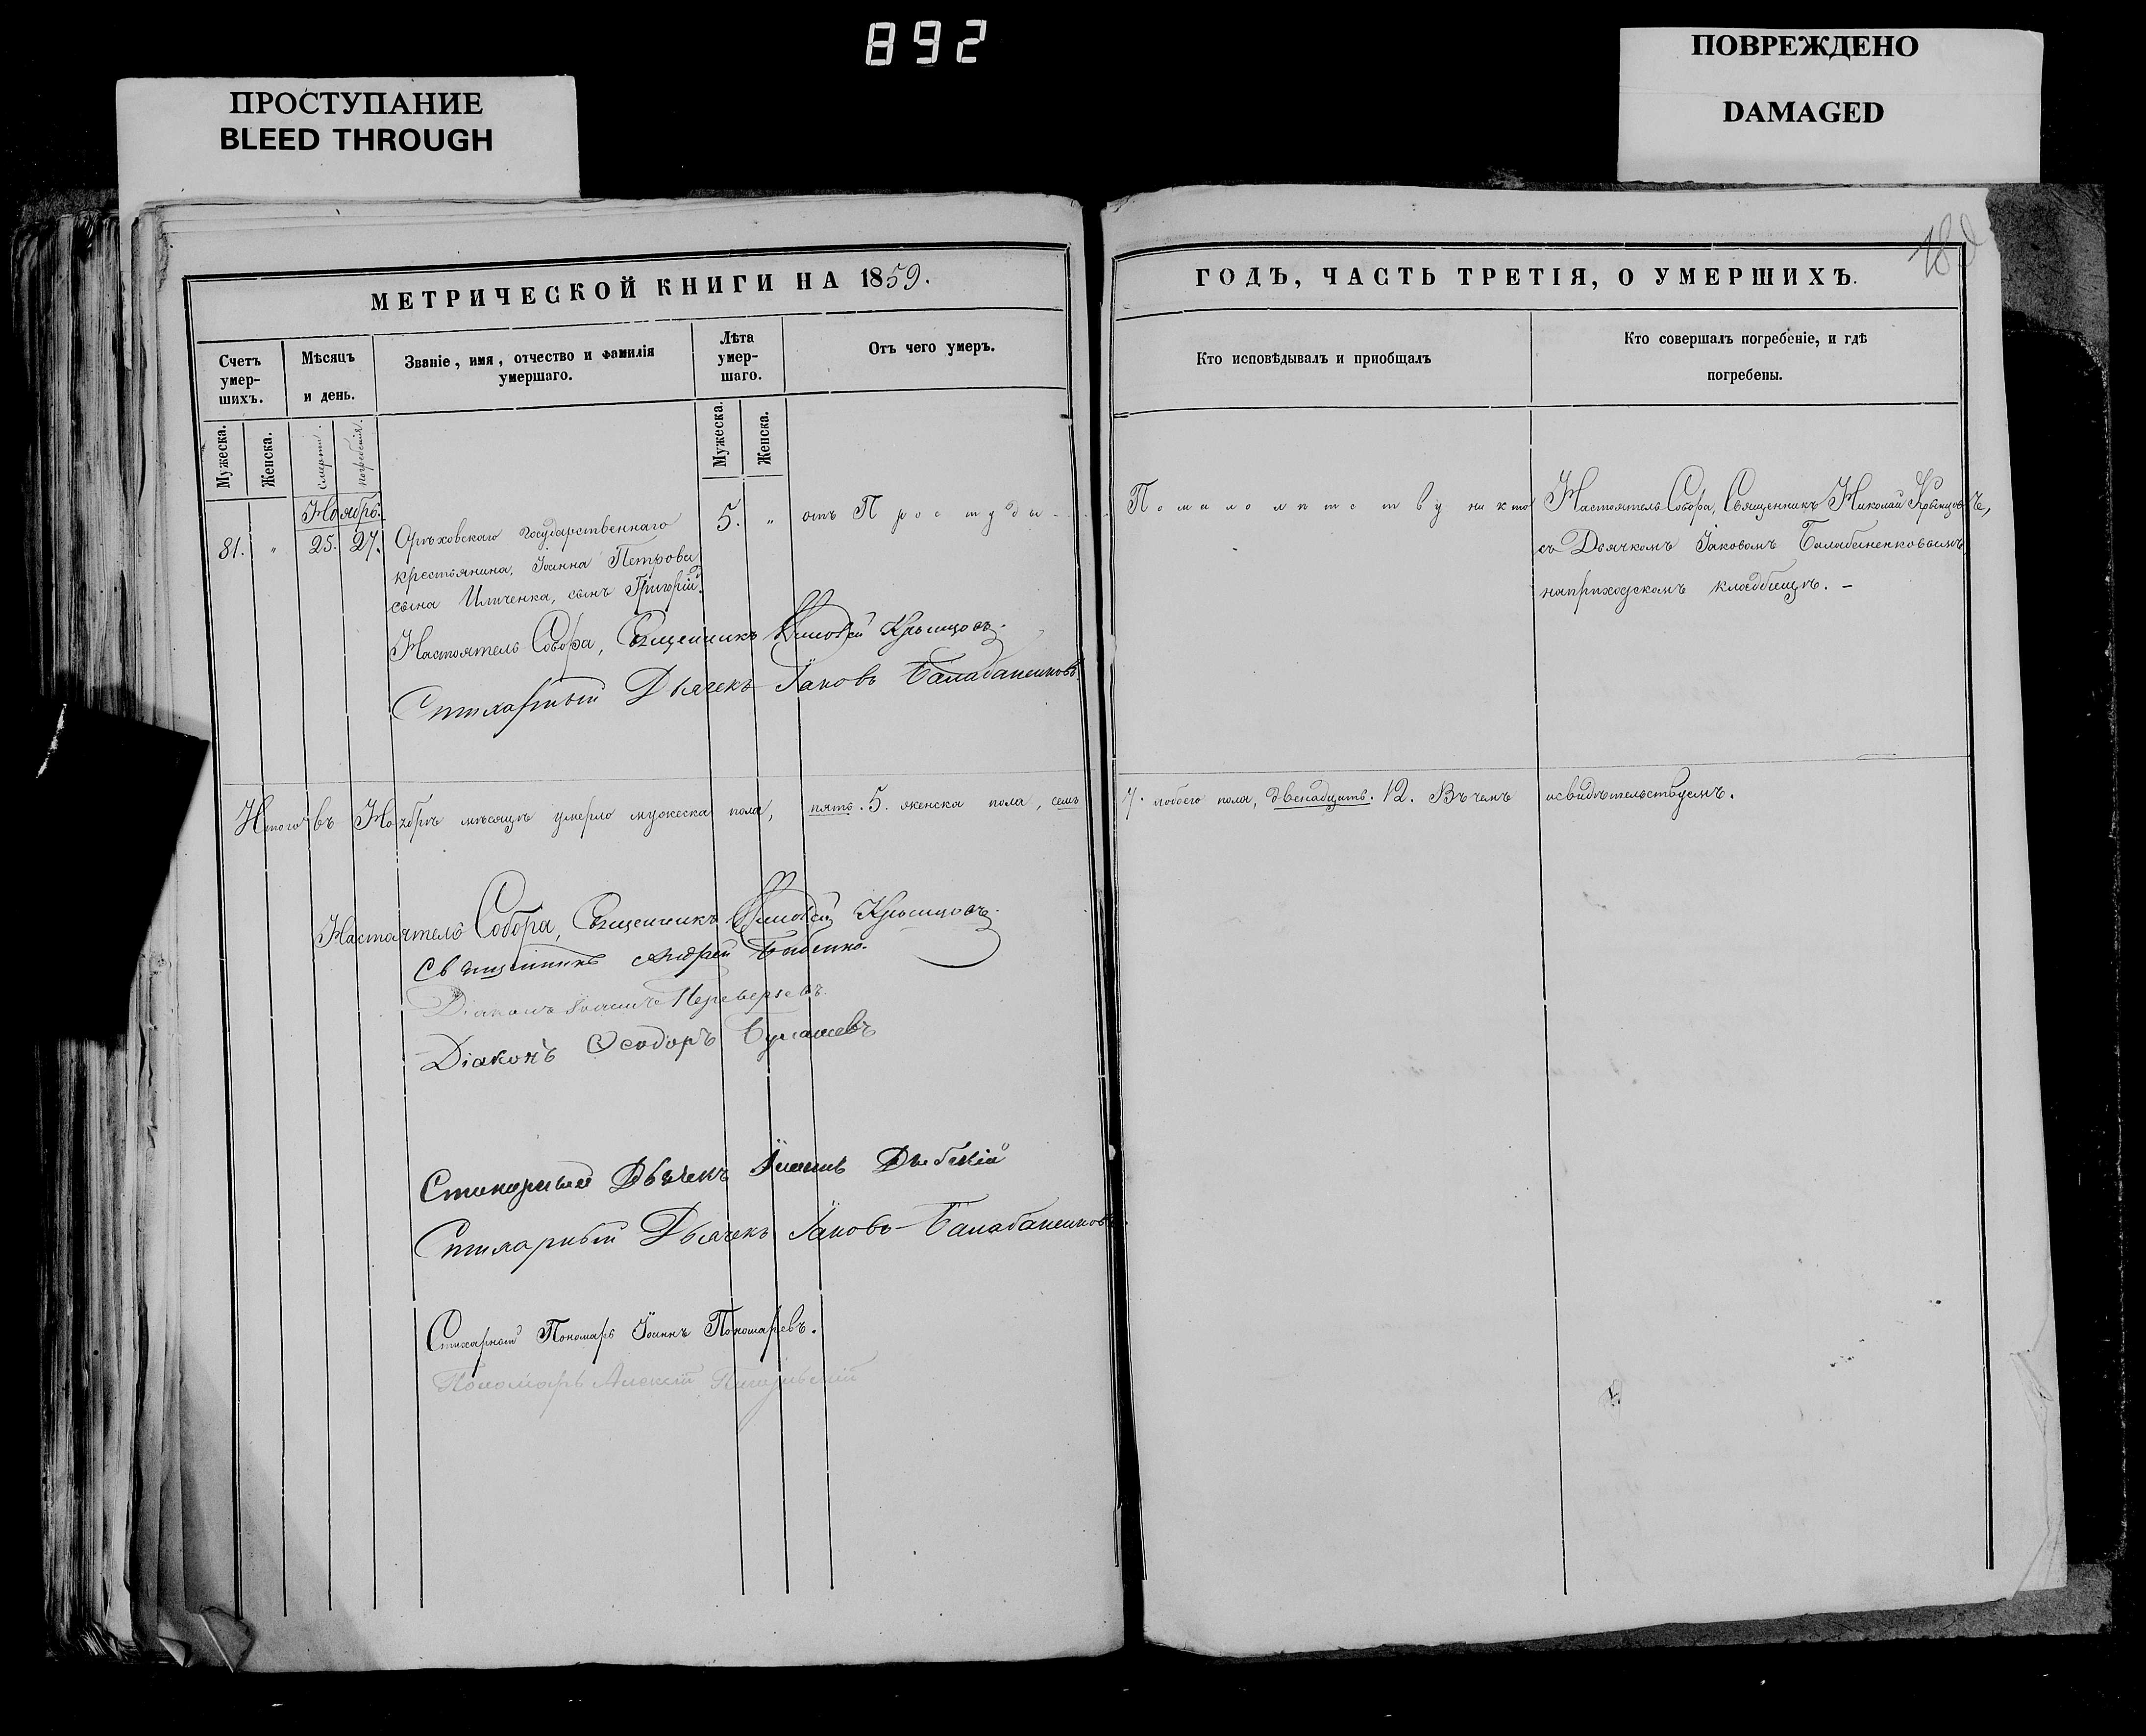 892
ПРОСТУПАНИЕ
BLEED THROUGH
ПОВРЕЖДЕНО
DAMAGED
МЕТРИЧЕСКОЙ КНИГИ НА 1859.
Счетъ умер-шихъ.
Мѣсяцъ и день.
Званіе, имя, отчество и фамилія умершаго.
Лѣта умер-шаго.
Отъ чего умеръ.
Мужеска.
Женска.
смерти.
погребенія.
Мужеска.
Женска.
Ноябрь.
81. „ 25. 27. Орѣховскаго государственнаго 5. „ отъ Простуды
крестьянина, Іоанна Петрова
сына Иличенка, сынъ Григорій.
Настоятель Собора, Священникъ Николай Крынцовъ.
Стихарный Дьячекъ Іаковъ Балабаненковъ.
Итого въ Ноябрѣ мѣсяцѣ умерло мужеска пола, пять. 5. женска пола, семь
Настоятель Собора, Священникъ Николай Крынцовъ.
Священникъ Андрей
Діаконъ Іоаннъ Переверзевъ.
Діаконъ Ѳеодоръ
Стихарный Дьячекъ Іоаннъ
Стихарный Дьячекъ Іаковъ Балабаненковъ.
Стихарный Пономарь Іоаннъ Пономаревъ.
Пономарь Алексій
180
ГОДЪ, ЧАСТЬ ТРЕТІЯ, О УМЕРШИХЪ.
Кто исповѣдывалъ и приобщалъ
Кто совершалъ погребеніе, и гдѣ
погребены.
По малолетству никто Настоятель Собора, Священникъ Николай Крынцовъ,
съ Дьячкомъ Іаковомъ Балабаненковымъ
на приходскомъ кладбищѣ. –
7. обоего пола, двенадцать. 12. Въ чемъ и свидѣтельствуемъ.